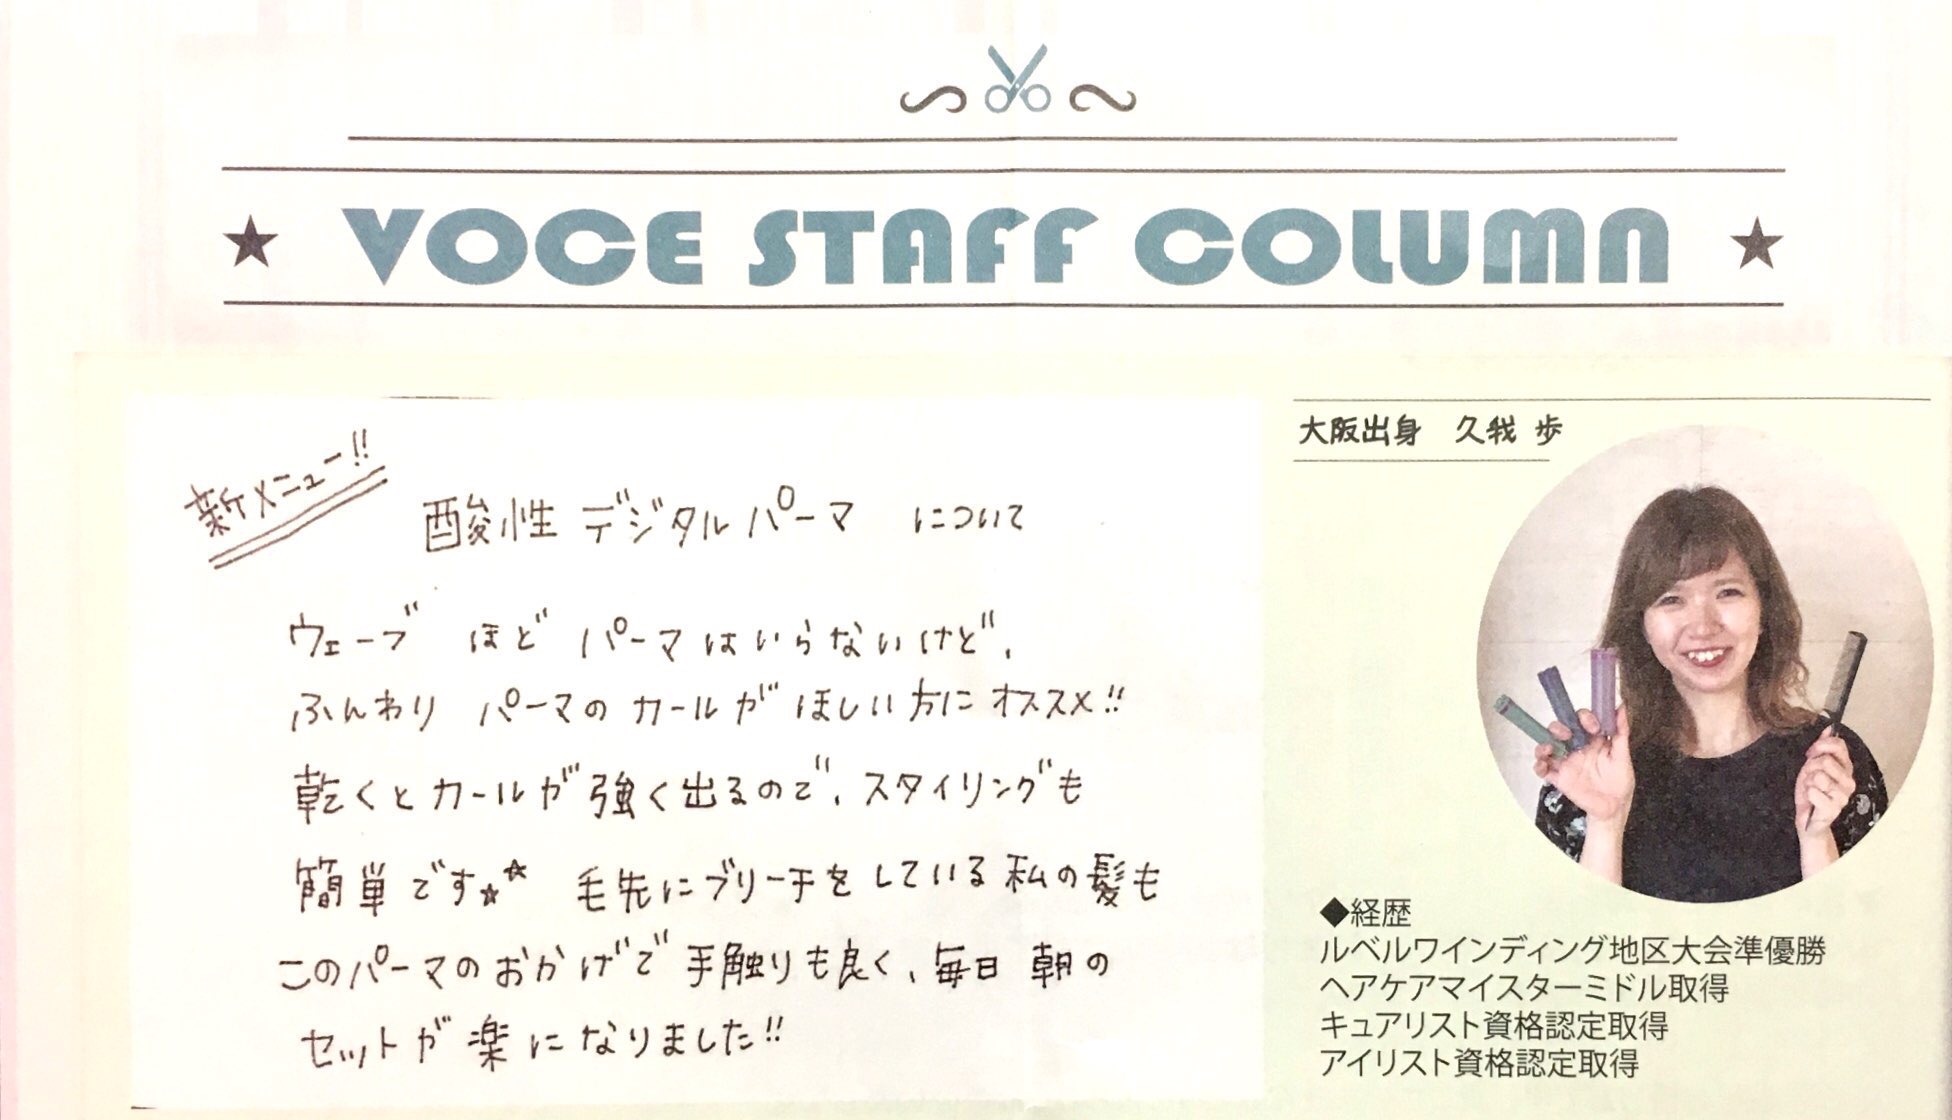 VOCE STAFF COLUMN
新メニュー!!
酸性デジタルパーマ について
ウェーブ ほど パーマはいらないけど、
ふんわり パーマのカールがほしい方にオススメ!!
乾くとカールが強く出るので、スタイリングも
簡単です☆☆ 毛先にブリーチをしている私の髪も
このパーマのおかげで手触りも良く、毎日 朝の
セットが楽になりました!!
大阪出身 久我 歩
◆経歴
ルベルワインディング地区大会準優勝
ヘアケアマイスターミドル取得
キュアリスト資格認定取得
アイリスト資格認定取得